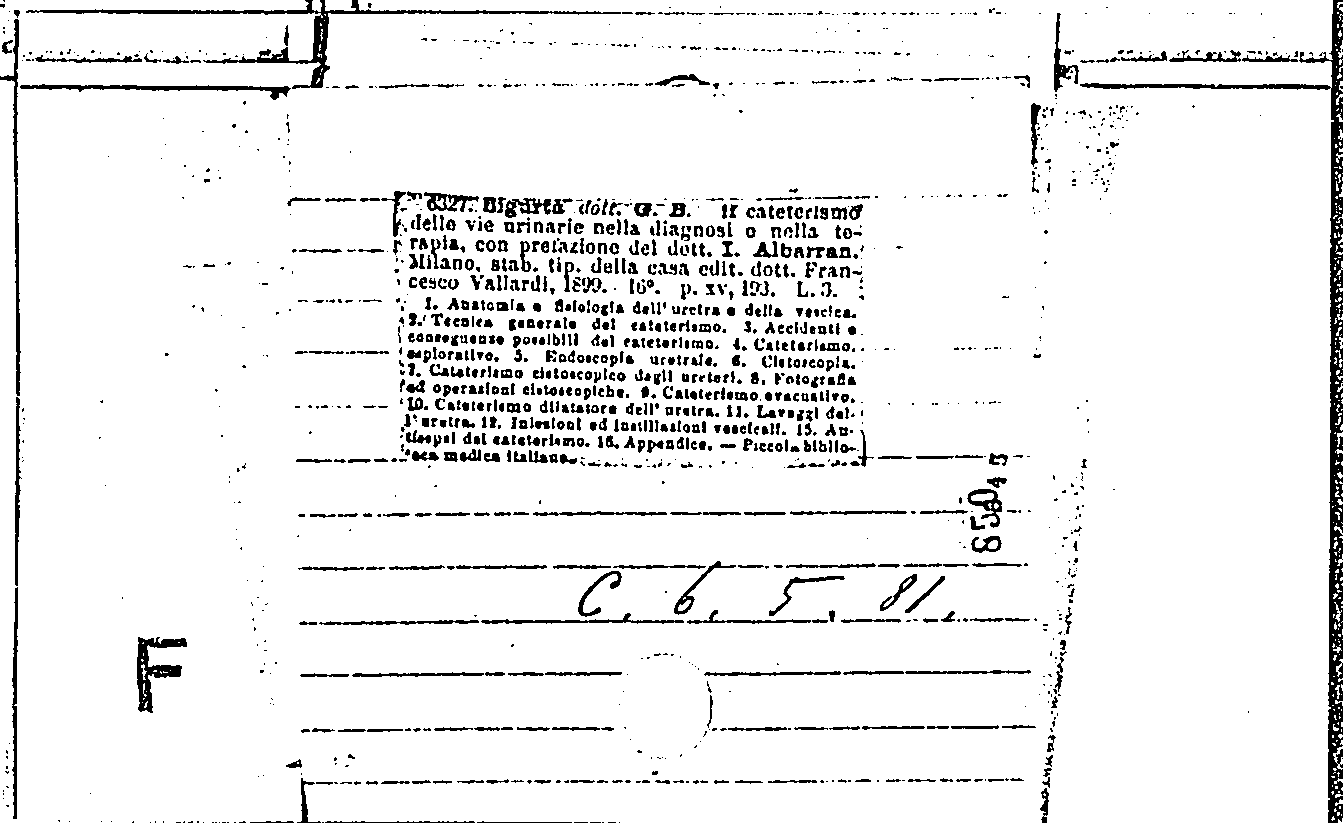 6327. Sigurtà dott. G. B. Il cateterismo
delle vie urinarie nella diagnosi e nella te-
rapia, con prefazione del dott. I. Albarran.
Milano, stab. tip. della casa edit. dott. Fran-
cesco Vallardi, 1899. 16°. p. xv, 193. L. 3.
1. Anatomia e fisiologia dell' uretra e della vescica.
2. Tecnica generale del cateterismo. 3. Accidenti e
conseguenze possibili del cateterismo. 4. Cateterismo
esplorativo. 5. Endoscopia uretrale. 6. Cistoscopia.
7. Cateterismo cistoscopico degli ureteri. 8. Fotografia
ed operazioni cistoscopiche. 9. Cateterismo evacuativo.
10. Cateterismo dilatatore dell' uretra. 11. Lavaggi del-
l' uretra. 12. Iniezioni ed instillazioni vescicali. 15. An-
tisepsi del cateterismo. 16. Appendice. — Piccola biblio-
teca medica italiana.
85045
C. 6. 5. 81.
F